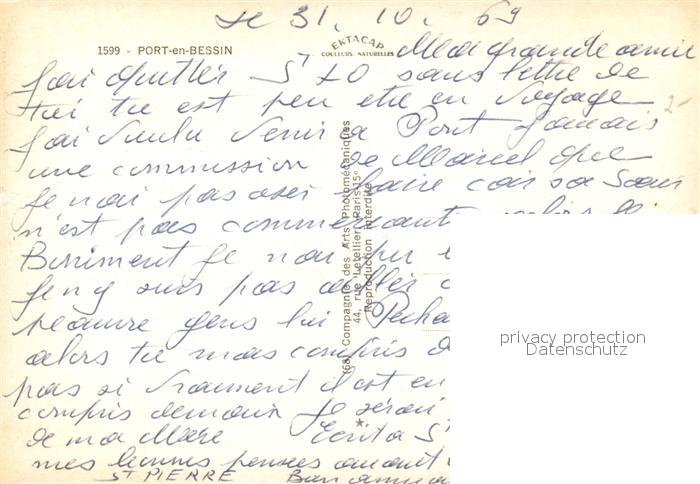 Le 31. 10. 69
1599 - PORT-en-BESSIN
EKTACAP
COULEURS NATURELLES
Ma grande amie
J'ai quitter St LO sans lettre de
toi tu est peu etre en voyage
J'ai voulu venir a Port J'avais
une commission de Marcel que
Je n'ai pas oser faire car sa Soeur
n'est pas commercante
Je n'ai pu
Je n'y suis pas aller
pauvre gens lui
alors tu m'as compris
pas si vraiment il est en
compris demain Je serai
de ma Mère Ecrit a St
mes bonnes pensees
ST PIERRE Bon
(68) Compagnie des Arts Photomécaniques
44, rue Letellier, Paris-15e
Reproduction interdite
privacy protection
Datenschutz